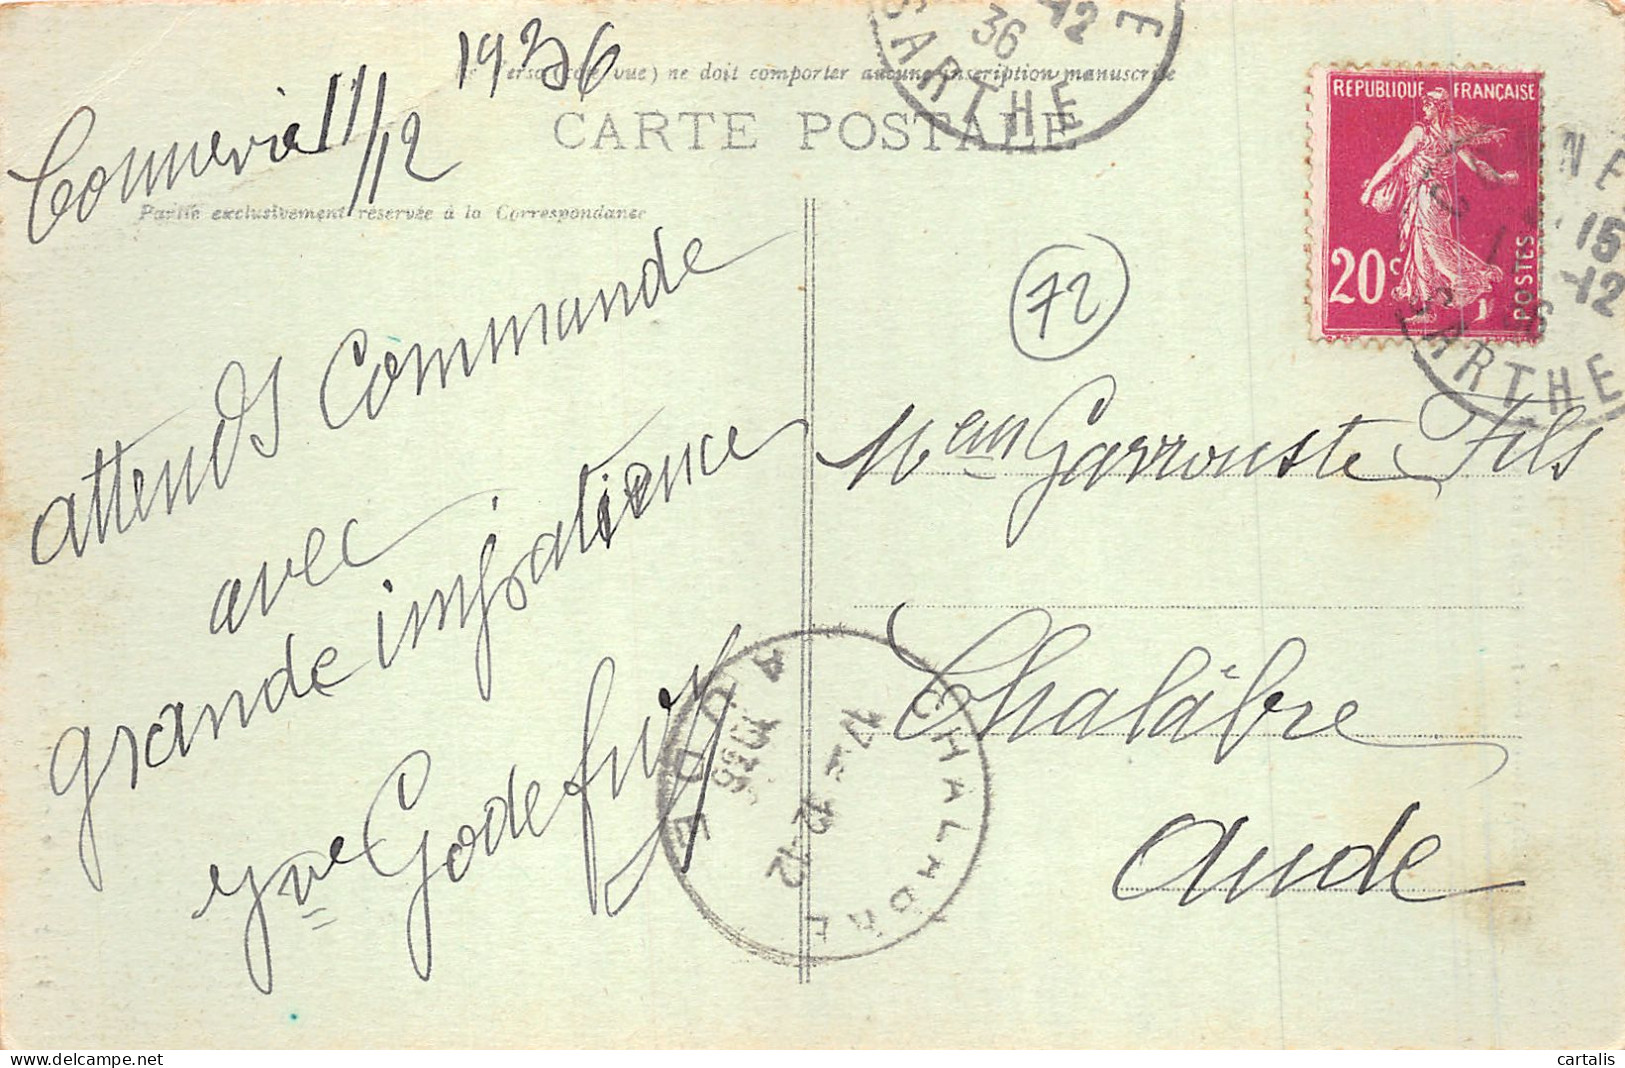 Connerré 11/12 1936
Le Verso (côté vue) ne doit comporter aucune inscription manuscrite
CARTE POSTALE
Partie exclusivement réservée à la Correspondance
attends Commande
avec
grande impatience
Yve Godefroy
72
Garrouste Fils
Chalâbre
Aude
REPUBLIQUE FRANÇAISE
20c
POSTES
SARTHE
36
-12
E
NE
15
-12
36
SARTHE
CHALABRE
AUDE
17
12-12
1936
cartalis